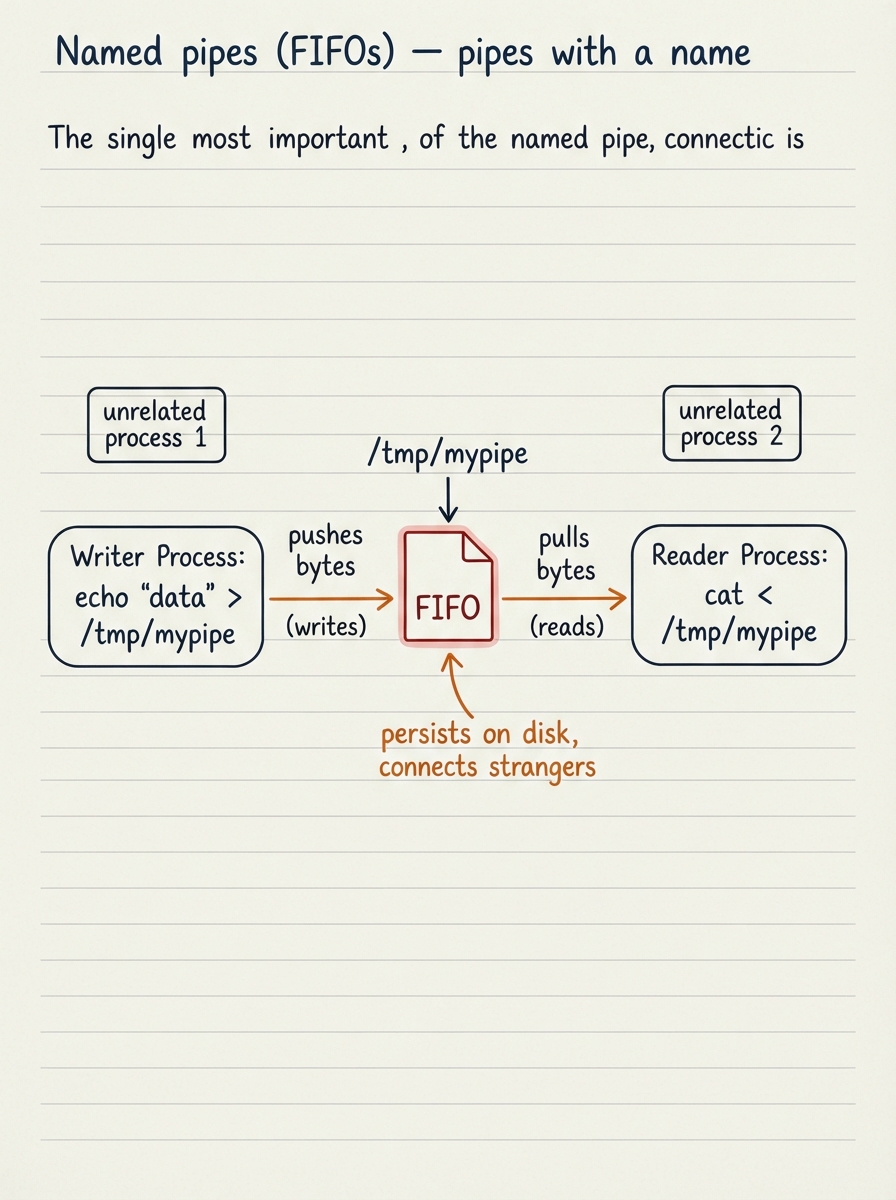 Named pipes (FIFOs) — pipes with a name
The single most important , of the named pipe, connectic is
unrelated
process 1
unrelated
process 2
/tmp/mypipe
Writer Process:
echo “data” >
/tmp/mypipe
pushes
bytes
(writes)
FIFO
pulls
bytes
(reads)
Reader Process:
cat <
/tmp/mypipe
persists on disk,
connects strangers